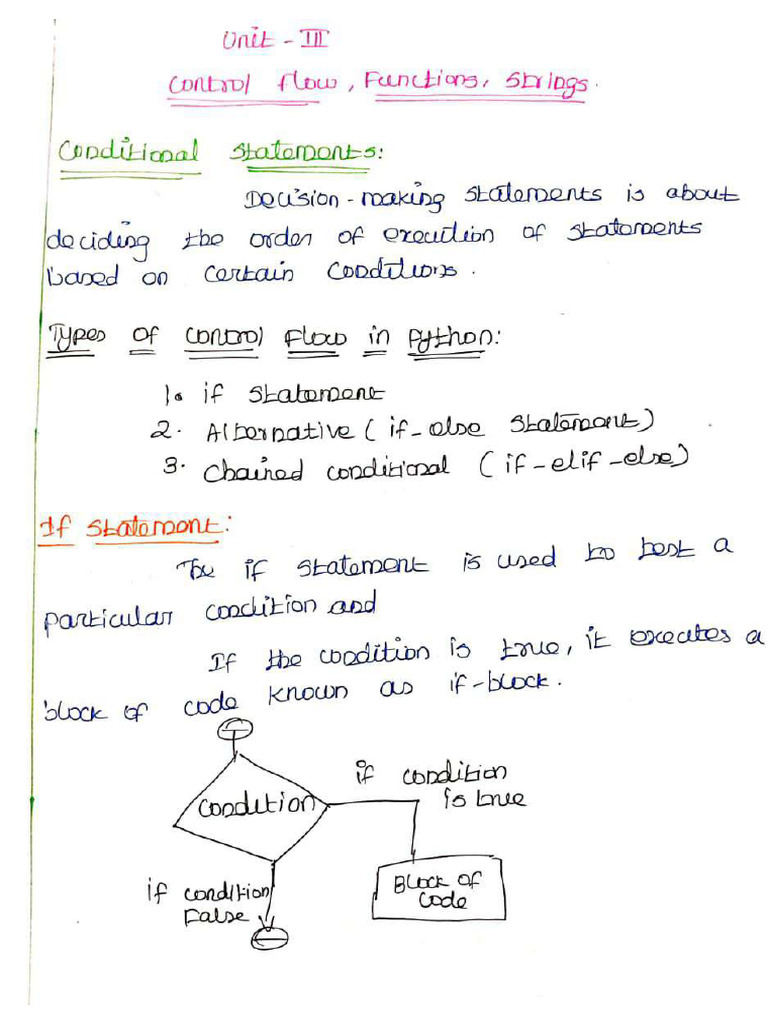 Unit - III
Control flow, Functions, Strings.
Conditional Statements:
Decision-making statements is about
deciding the order of execution of statements
based on certain conditions.
Types of control Flow in Python:
1. if statement
2. Alternative (if-else statement)
3. Chained conditional (if-elif-else)
If statement:
The if statement is used to test a
particular condition and
If the condition is true, it executes a
block of code known as if-block.
condition
if condition
is true
Block of
code
if condition
False